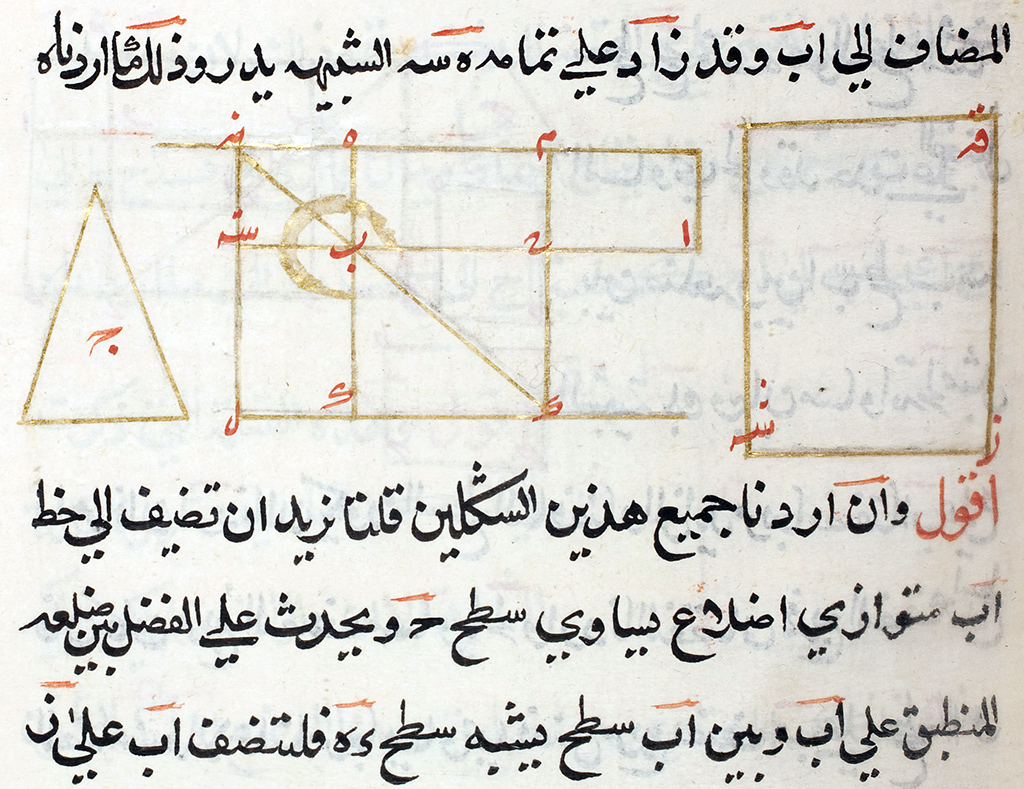 المضاف الي اب وقد زاد علي تمامه ه سه الشبيه بدر وذلك ما اردناه
ض ه م ق
سه ب ح ا
ج
ل ك ء شه ز
اقول وان اردنا جميع هذين الشكلين قلنا نريد ان تضيف الي خط
اب متوازي اضلاع يساوي سطح ح ويحدث علي الفضل بين ضلعه
المنطبق علي اب وبين اب سطح يشبه سطح ءه فلنتصف اب علي ن